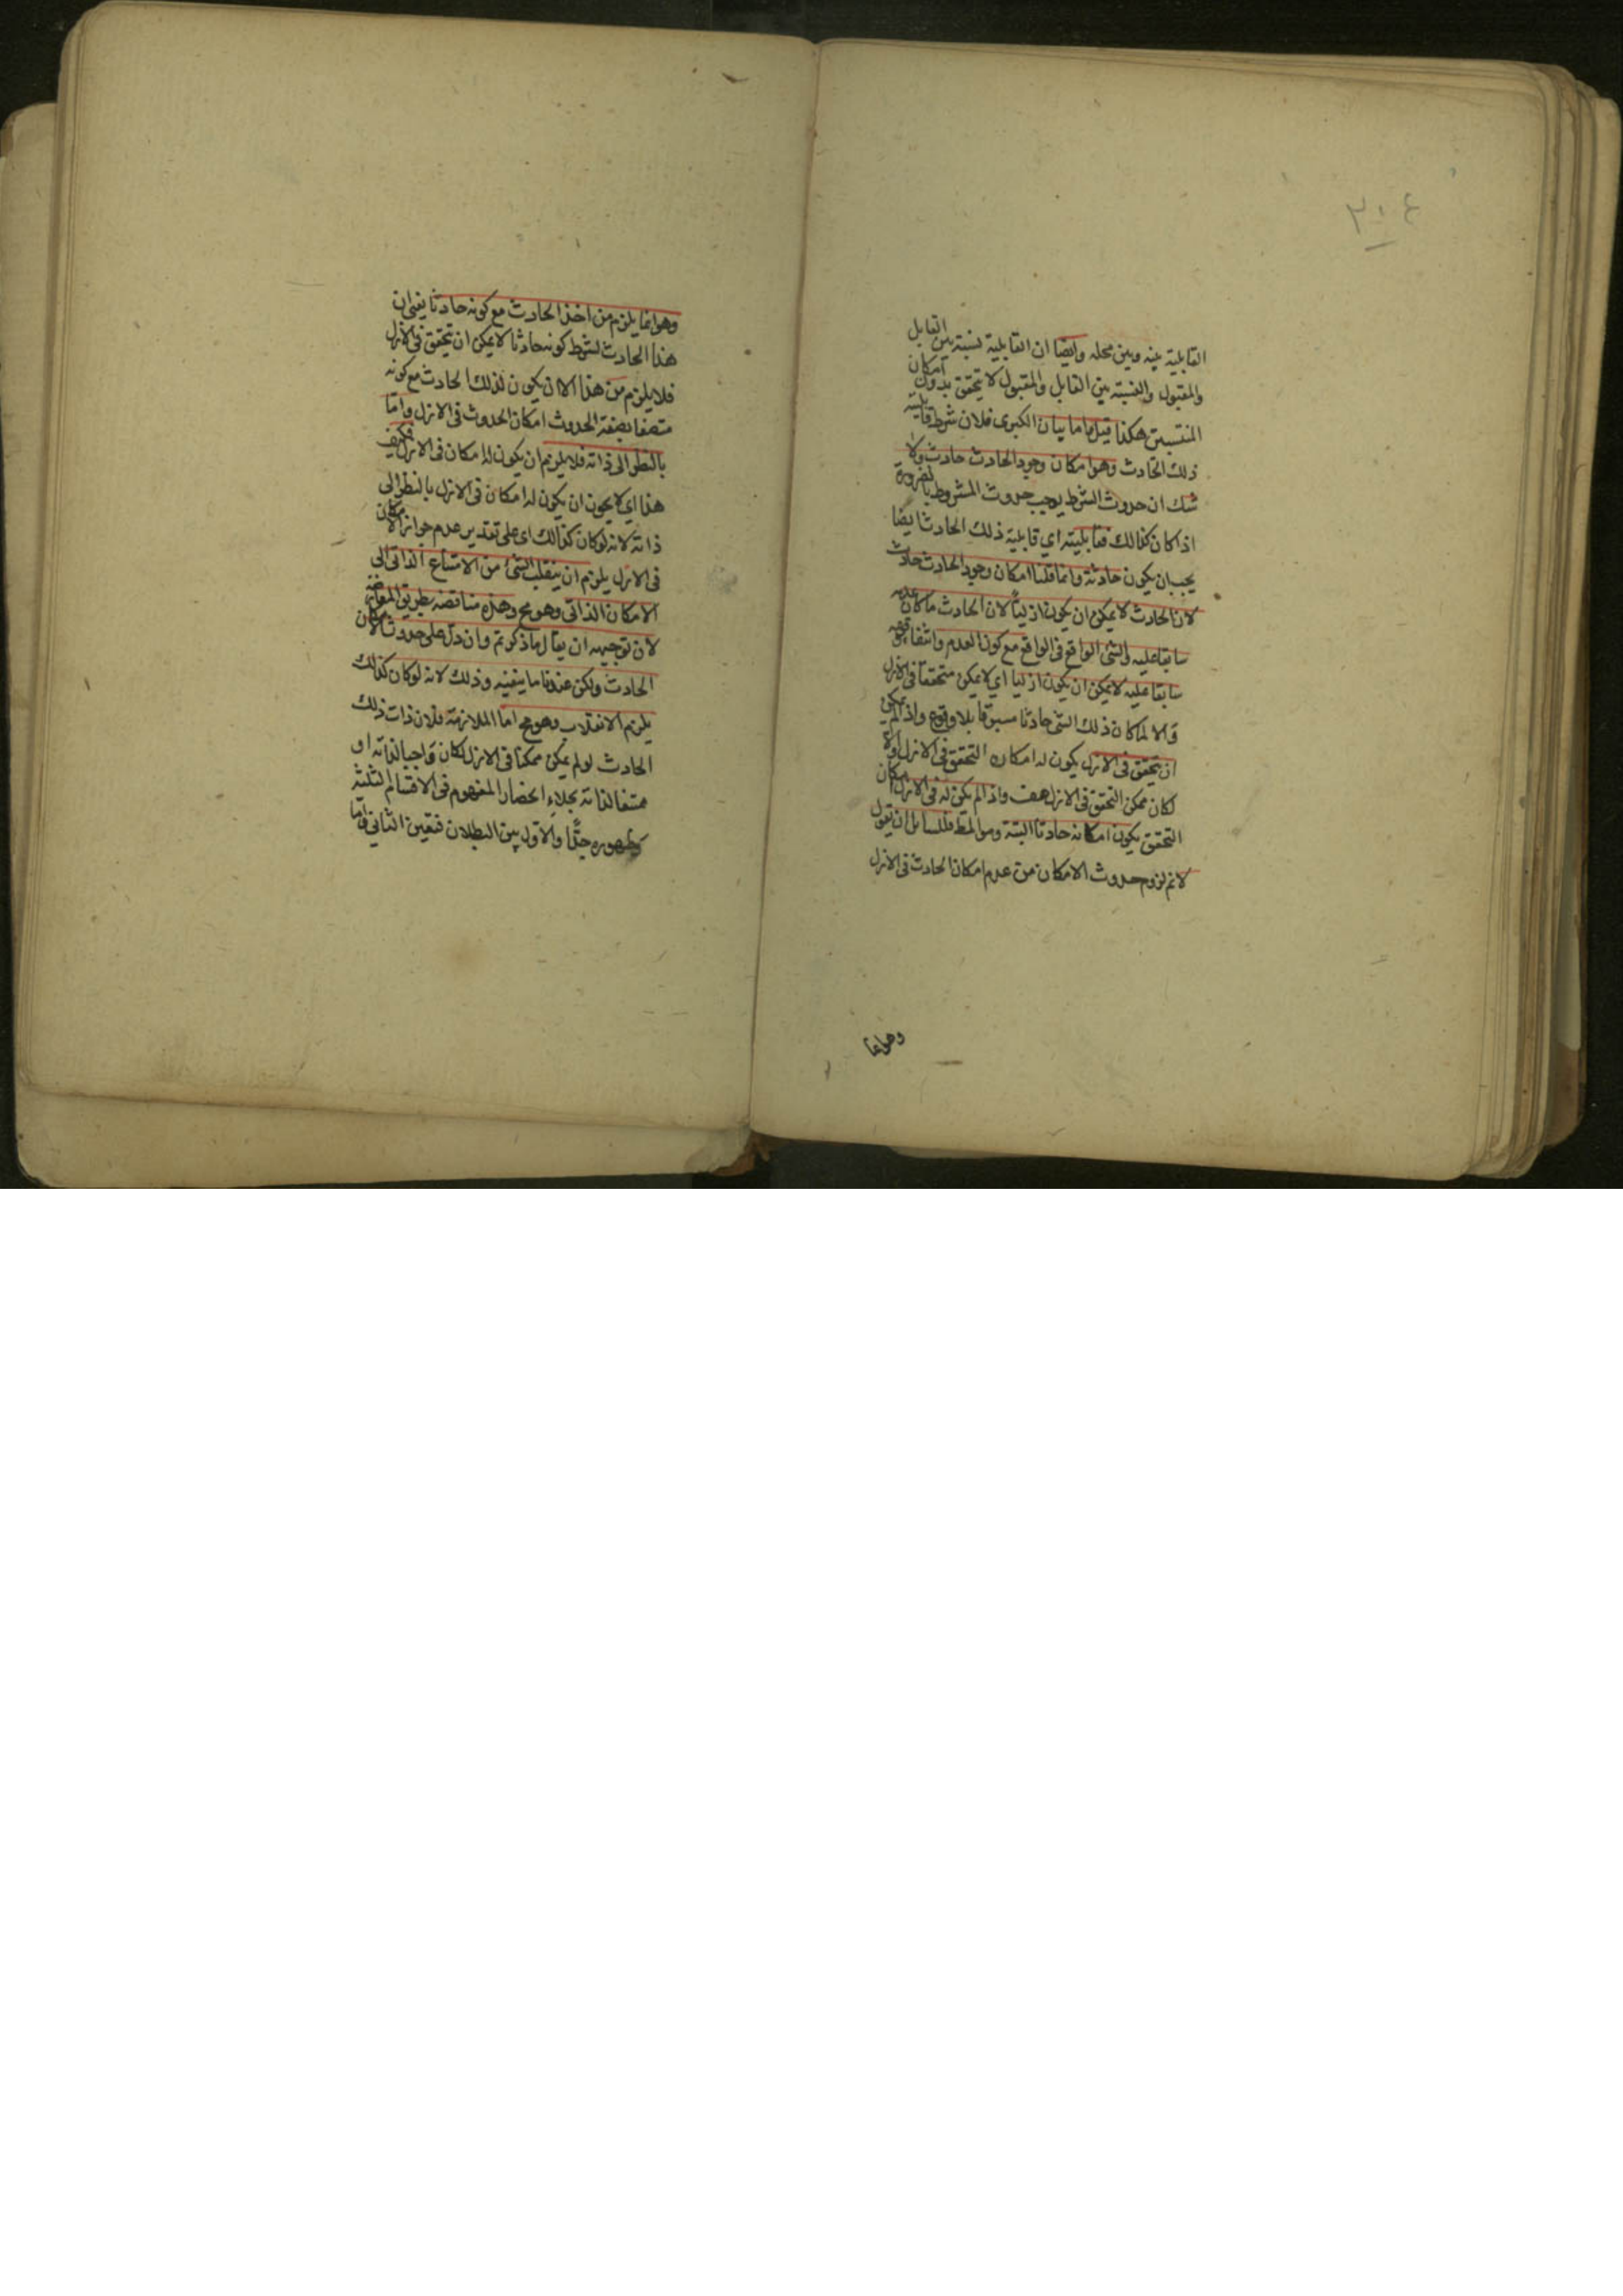 ٣١٤
القابلية بينه وبين محله وايضا ان القابلية نسبة بين القابل
والمقبول والنسبة بين القابل والمقبول لا تتحقق بدون امكان
المنتسبين هكذا قيل واما بيان الكبرى فلان شرط قابلية
ذلك الحادث وهو امكان وجود الحادث حادث ولا
شك ان حدوث الشرط يوجب حدوث المشروط بالضرورة
اذا كان كذلك فقابليته اي قابلية ذلك الحادث ايضا
يجب ان يكون حادثة وانما قلنا امكان وجود الحادث حادث
لان الحادث لا يمكن ان يكون ازليا لان الحادث ما كان عدمه
سابقا عليه والشئ الواقع في الواقع مع كون العدم
سابقا عليه لا يمكن ان يكون ازليا اي لا يمكن متحققا في الازل
والا لما كان ذلك الشئ حادثا مسبوقا بلا وقوع واذا لم يمكن
ان يتحقق في الازل يكون له امكان التحقق في الازل والا
لكان ممكن التحقق في الازل هف واذا لم يكن له في الازل امكان
التحقق يكون امكانه حادثا البتة وهو المط فللسايل ان يقول
لا نم لزوم حدوث الامكان من عدم امكان الحادث في الازل
وهو انما
وهو انما يلزم من اخذ الحادث مع كونه حادثا يعني ان
هذا الحادث بشرط كونه حادثا لا يمكن ان يتحقق في الازل
فلا يلزم من هذا الا ان يكون لذلك الحادث مع كونه
متصفا بصفة الحدوث امكان الحدوث في الازل واما
بالنظر الى ذاته فلا يلزم ان يكون له امكان في الازل فكيف
هذا اي لا يجوز ان يكون له امكان في الازل بالنظر الى
ذاته لانه لو كان كذلك اي على تقدير عدم جواز الامكان
في الازل يلزم ان ينقلب الشئ من الامتناع الذاتي الى
الامكان الذاتي وهو مح وهذه مناقضة بطريق المعارضة
لان توجيهه ان يقال ما ذكرتم وان دل على حدوث الامكان
الحادث ولكن عندنا ما ينفيه وذلك لانه لو كان كذلك
يلزم الانقلاب وهو مح اما الملازمة فلان ذات ذلك
الحادث لو لم يكن ممكنا في الازل لكان واجبا لذاته او
ممتنعا لذاته بجلاء انحصار المفهوم في الاقسام الثلثة
وظهوره جدا والاول بين البطلان فتعين الثاني واما